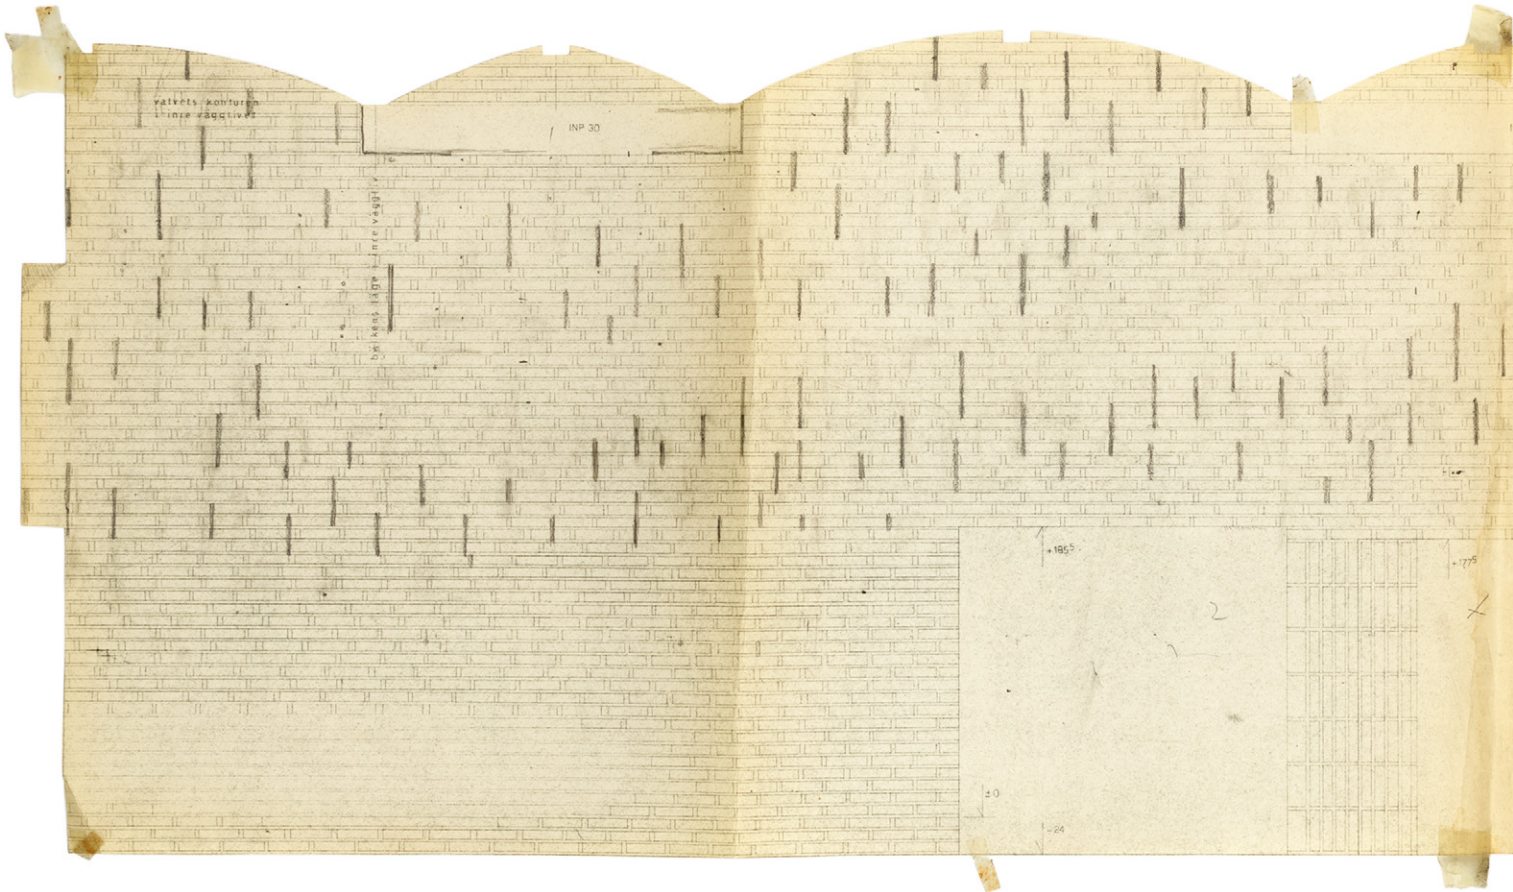 valvets konturen
i inre vägglivet
INP 30
balkens läge i inre väggliv
+185⁵
+177⁵
2
±0
-24